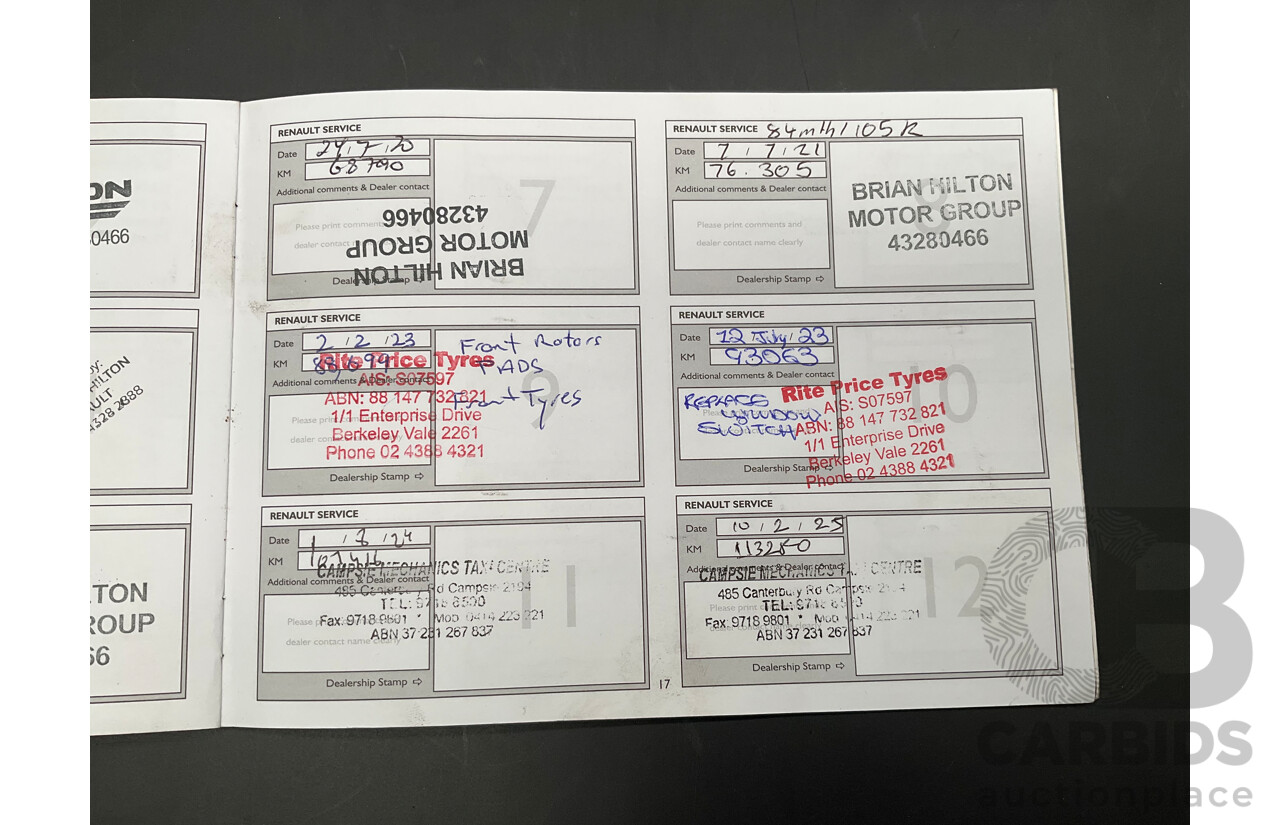 ON
0466
HILTON
ULT
4328 2888
TON
ROUP
66
RENAULT SERVICE
Date 29,7,20
KM 68790
Additional comments & Dealer contact
7
Please print comments
dealer contact
BRIAN HILTON
MOTOR GROUP
43280466
Dealership Stamp ⇨
RENAULT SERVICE 84mth/105K
Date 7/7/21
KM 76.305
Additional comments & Dealer contact
8
Please print comments and
dealer contact name clearly
BRIAN HILTON
MOTOR GROUP
43280466
Dealership Stamp ⇨
RENAULT SERVICE
Date 2/2/23
KM 88,699
Additional comments & Dealer contact
9
Front Rotors
PADS
Front Tyres
Rite Price Tyres
AIS: S07597
ABN: 88 147 732 821
1/1 Enterprise Drive
Berkeley Vale 2261
Phone 02 4388 4321
Please print
dealer
Dealership Stamp ⇨
RENAULT SERVICE
Date 12 July 23
KM 93063
Additional comments & Dealer contact
10
REPLACE
WINDOW
SWITCH
Rite Price Tyres
AIS: S07597
ABN: 88 147 732 821
1/1 Enterprise Drive
Berkeley Vale 2261
Phone 02 4388 4321
Dealership Stamp ⇨
RENAULT SERVICE
Date 1/8/24
KM 107416
Additional comments & Dealer contact
11
CAMPSIE MECHANICS TAXI CENTRE
485 Canterbury Rd Campsie 2194
TEL: 9718 8500
Fax: 9718 9801 * Mob 0414 223 221
ABN 37 231 267 837
Please
dealer contact name clearly
Dealership Stamp ⇨
RENAULT SERVICE
Date 10/2/25
KM 113250
Additional comments & Dealer contact
12
CAMPSIE MECHANICS TAXI CENTRE
485 Canterbury Rd Campsie 2194
TEL: 9718 8500
Fax: 9718 9801 * Mob 0414 223 221
ABN 37 231 267 837
Please print
dealer contact
Dealership Stamp ⇨
17
CB
CARBIDS
auctionplace